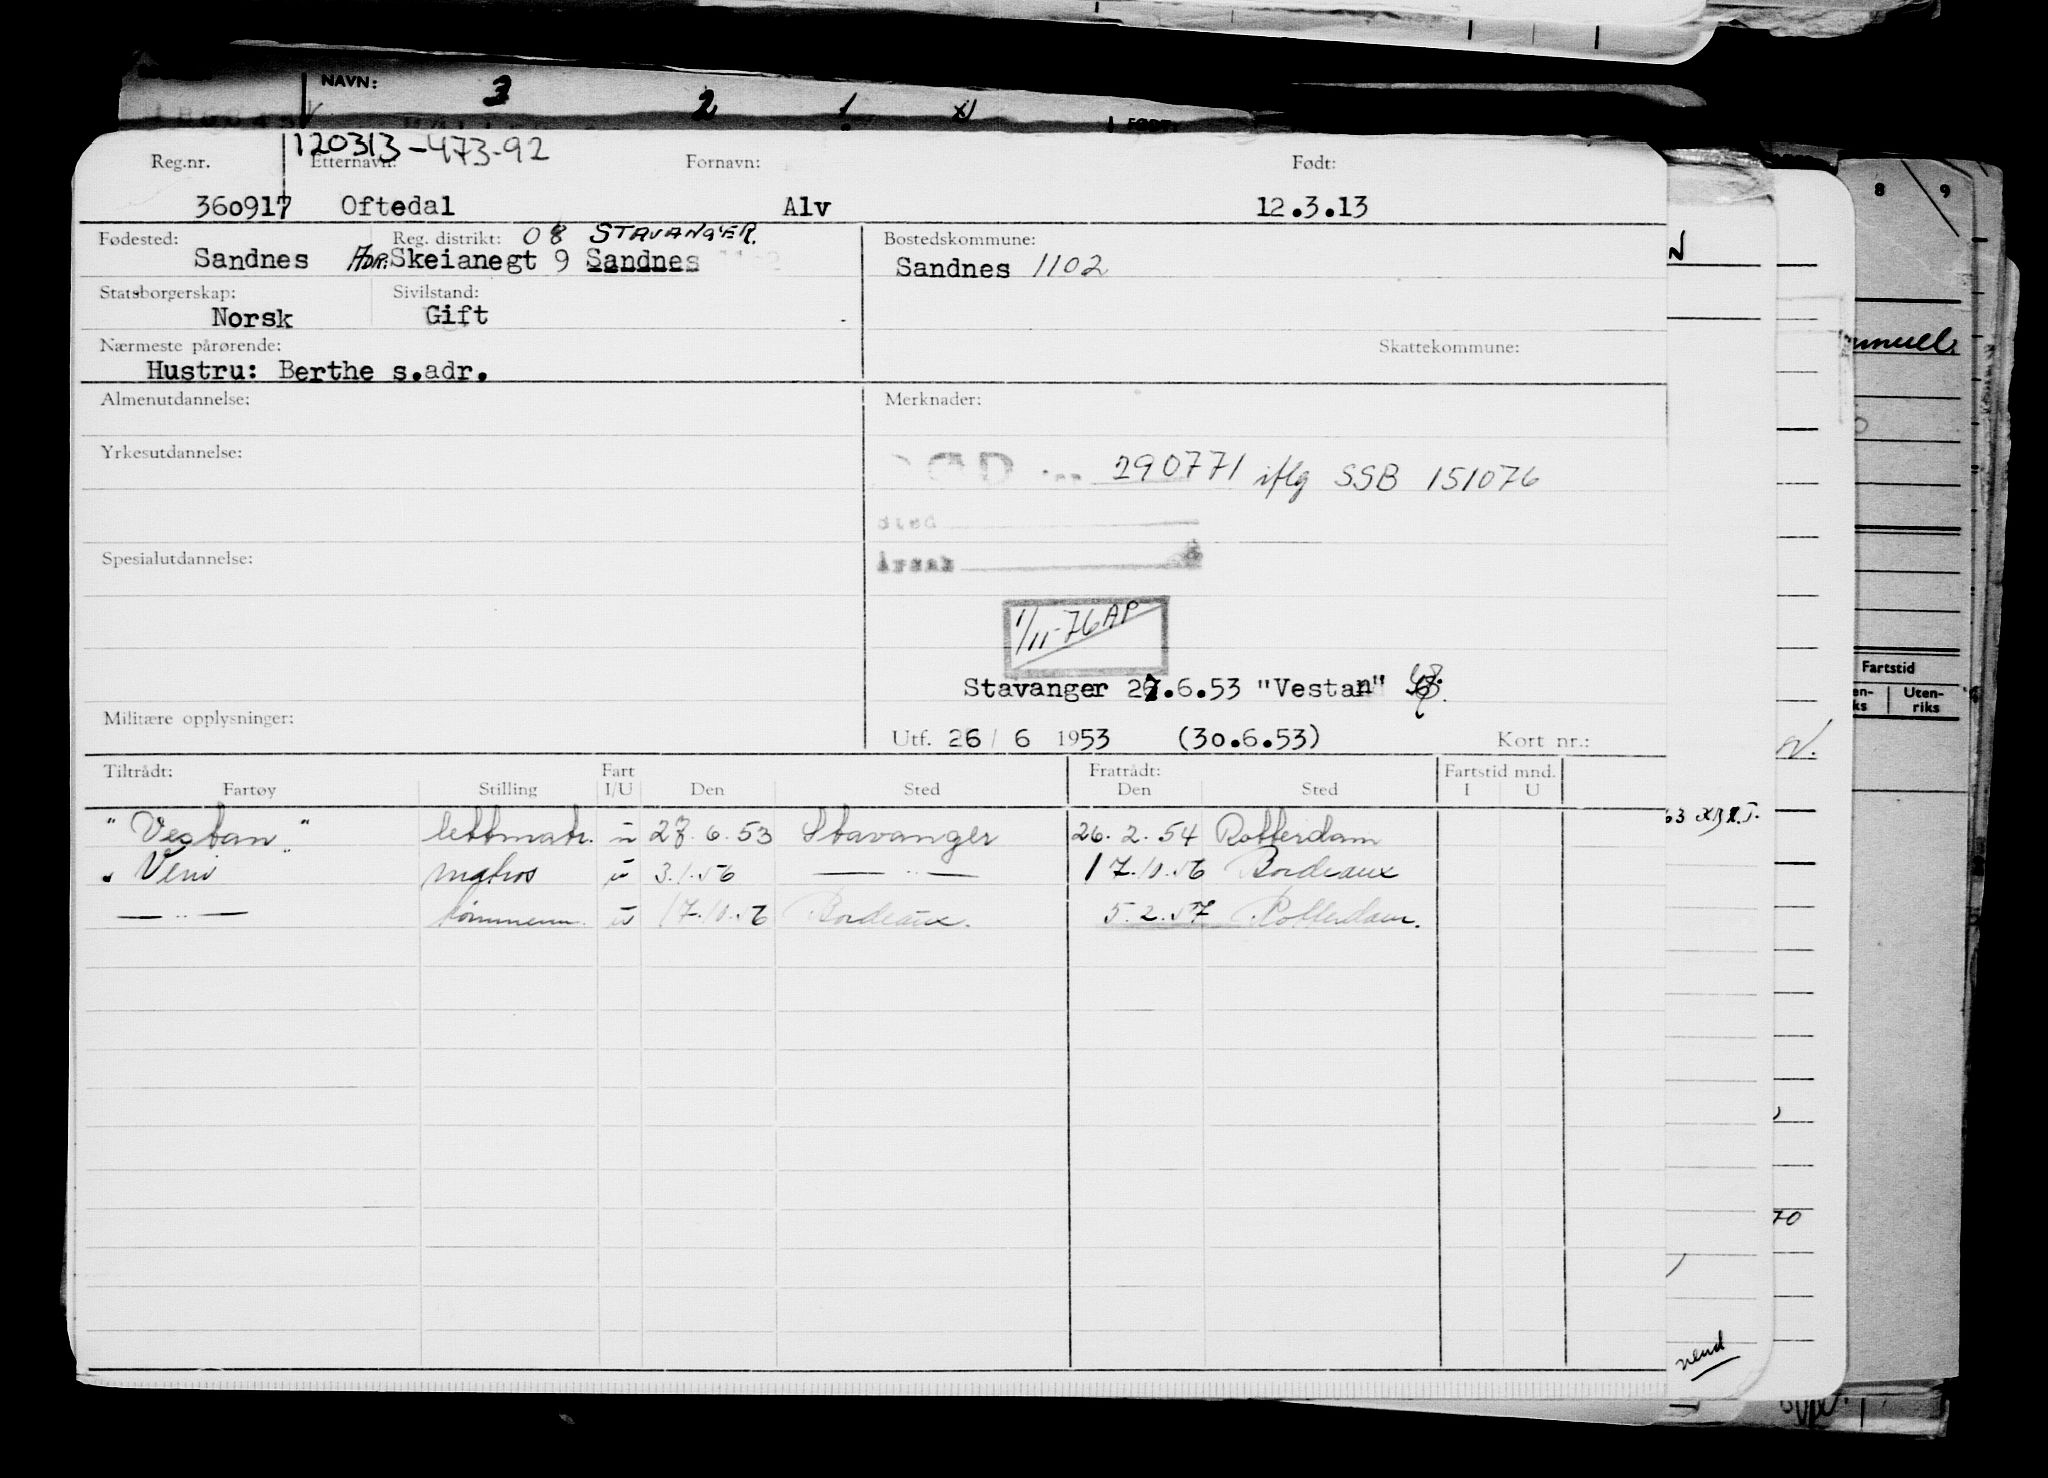 NAVN: 3 2 1 XI
120313-473-92
Reg.nr. Etternavn: Fornavn: Født:
360917 Oftedal Alv 12.3.13
Fødested: Reg. distrikt: 08 STAVANGER. Bostedskommune:
Sandnes ADR. Skeianegt 9 Sandnes Sandnes 1102
Statsborgerskap: Sivilstand:
Norsk Gift
Nærmeste pårørende: Skattekommune:
Hustru: Berthe s.adr.
Almenutdannelse: Merknader:
Yrkesutdannelse:
290771 iflg SSB 151076
sted
Årsak
Spesialutdannelse:
1/11-76 AP
Stavanger 27.6.53 "Vestan"
Militære opplysninger:
Utf. 26/ 6 1953 (30.6.53) Kort nr.:
Tiltrådt: Fart Fratrådt: Fartstid mnd.
Fartøy Stilling I/U Den Sted Den Sted I U
"Vestan" lettmatr. u 27.6.53 Stavanger 26.2.54 Rotterdam
"Veni" matros u 3.1.56 — " — 17.10.56 Bordeaux
— " — tømmerm. u 17.10.56 Bordeaux. 5.2.57 Rotterdam.
8 9
Fartstid
Uten-
riks
70